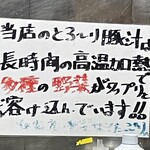 当店のとろ〜り豚汁は
長時間の高温加熱で
多種の野菜がタップリ
溶け込んでいます!!